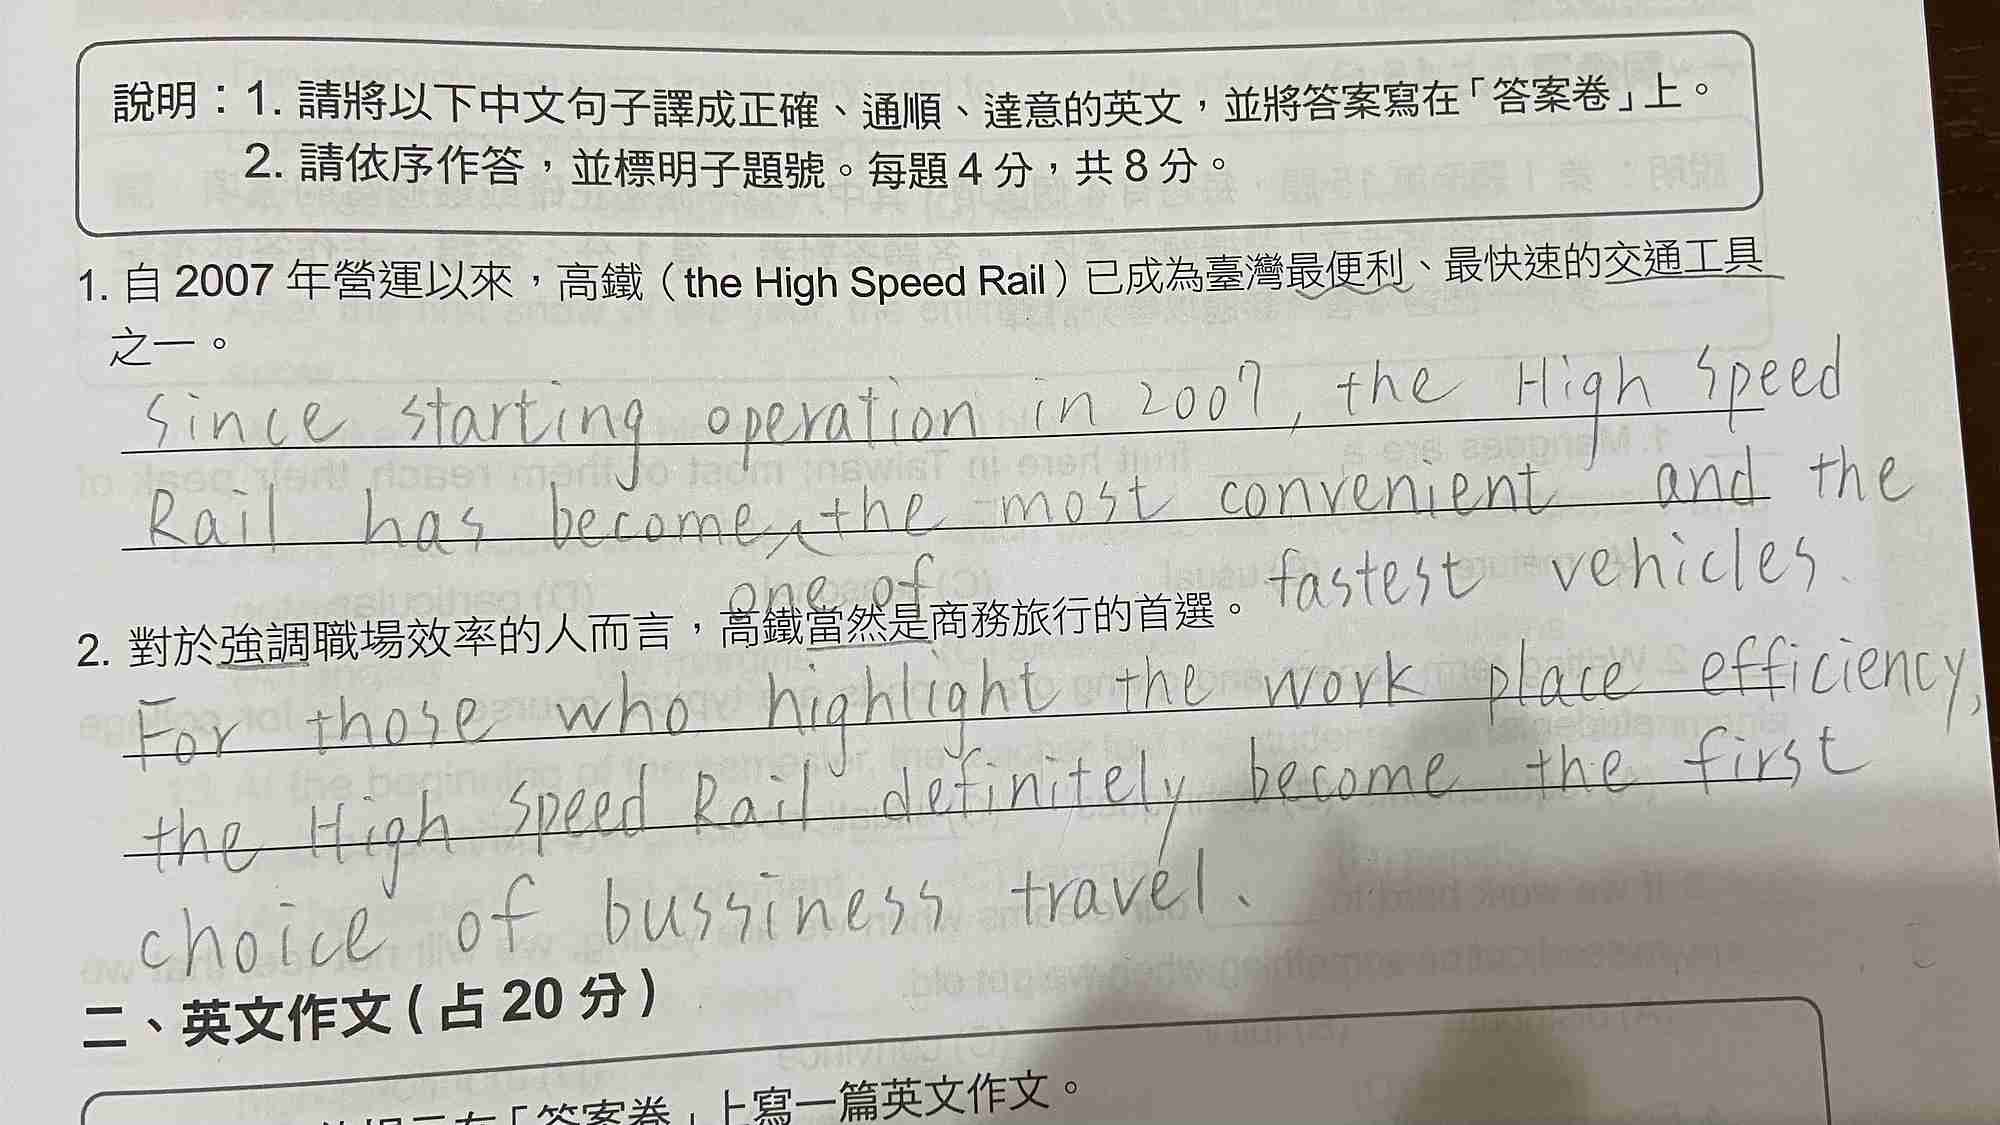 說明：1. 請將以下中文句子譯成正確、通順、達意的英文，並將答案寫在「答案卷」上。
2. 請依序作答，並標明子題號。每題 4 分，共 8 分。
1. 自 2007 年營運以來，高鐵（the High Speed Rail）已成為臺灣最便利、最快速的交通工具
之一。
Since starting operation in 2007, the High Speed
Rail has become one of the most convenient and the
fastest vehicles.
2. 對於強調職場效率的人而言，高鐵當然是商務旅行的首選。
For those who highlight the work place efficiency,
the High Speed Rail definitely become the first
choice of bussiness travel.
二、英文作文（占 20 分）
在「答案卷」上寫一篇英文作文。